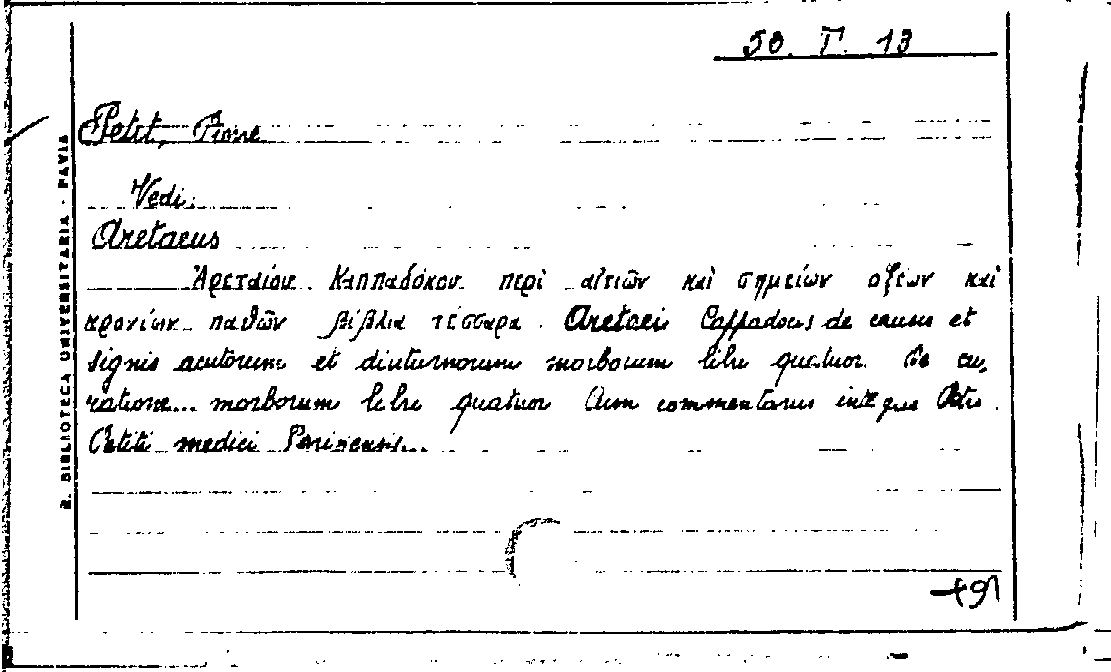 50. T. 13
Petit, Pierre
Vedi:
Aretaeus
Ἀρεταίου Καππαδόκου περὶ αἰτιῶν καὶ σημείων ὀξέων καὶ
χρονίων παθῶν βιβλία τέσσαρα. Aretaei Cappadocis de causis et
signis acutorum et diuturnorum morborum libri quatuor. De cu,
ratione... morborum libri quatuor Cum commentariis integris Petri
Petiti medici Parisiensis...
R. BIBLIOTECA UNIVERSITARIA - PAVIA